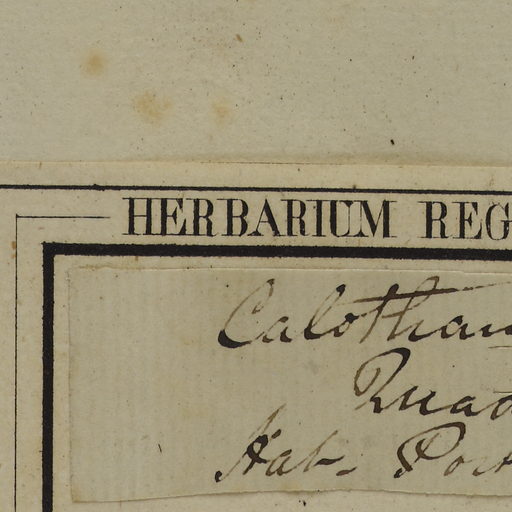 HERBARIUM REG
Calotham
Quad
Hab. Port